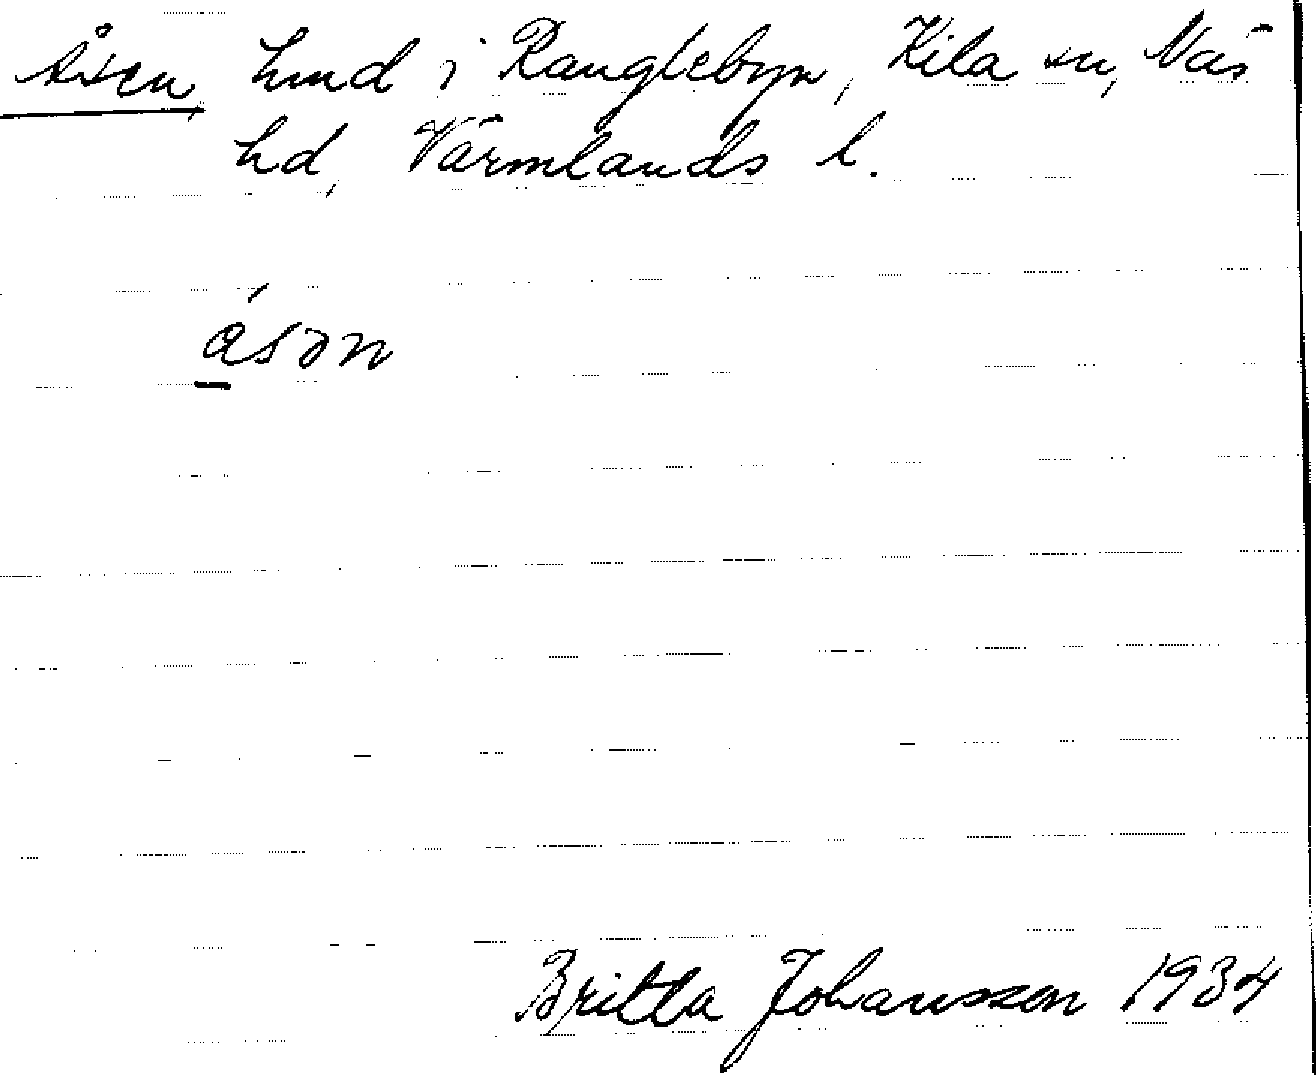 Åsen, hmd i Ranglebyn, Kila sn, Näs
hd, Värmlands l.
åsən
Britta Johansson 1934